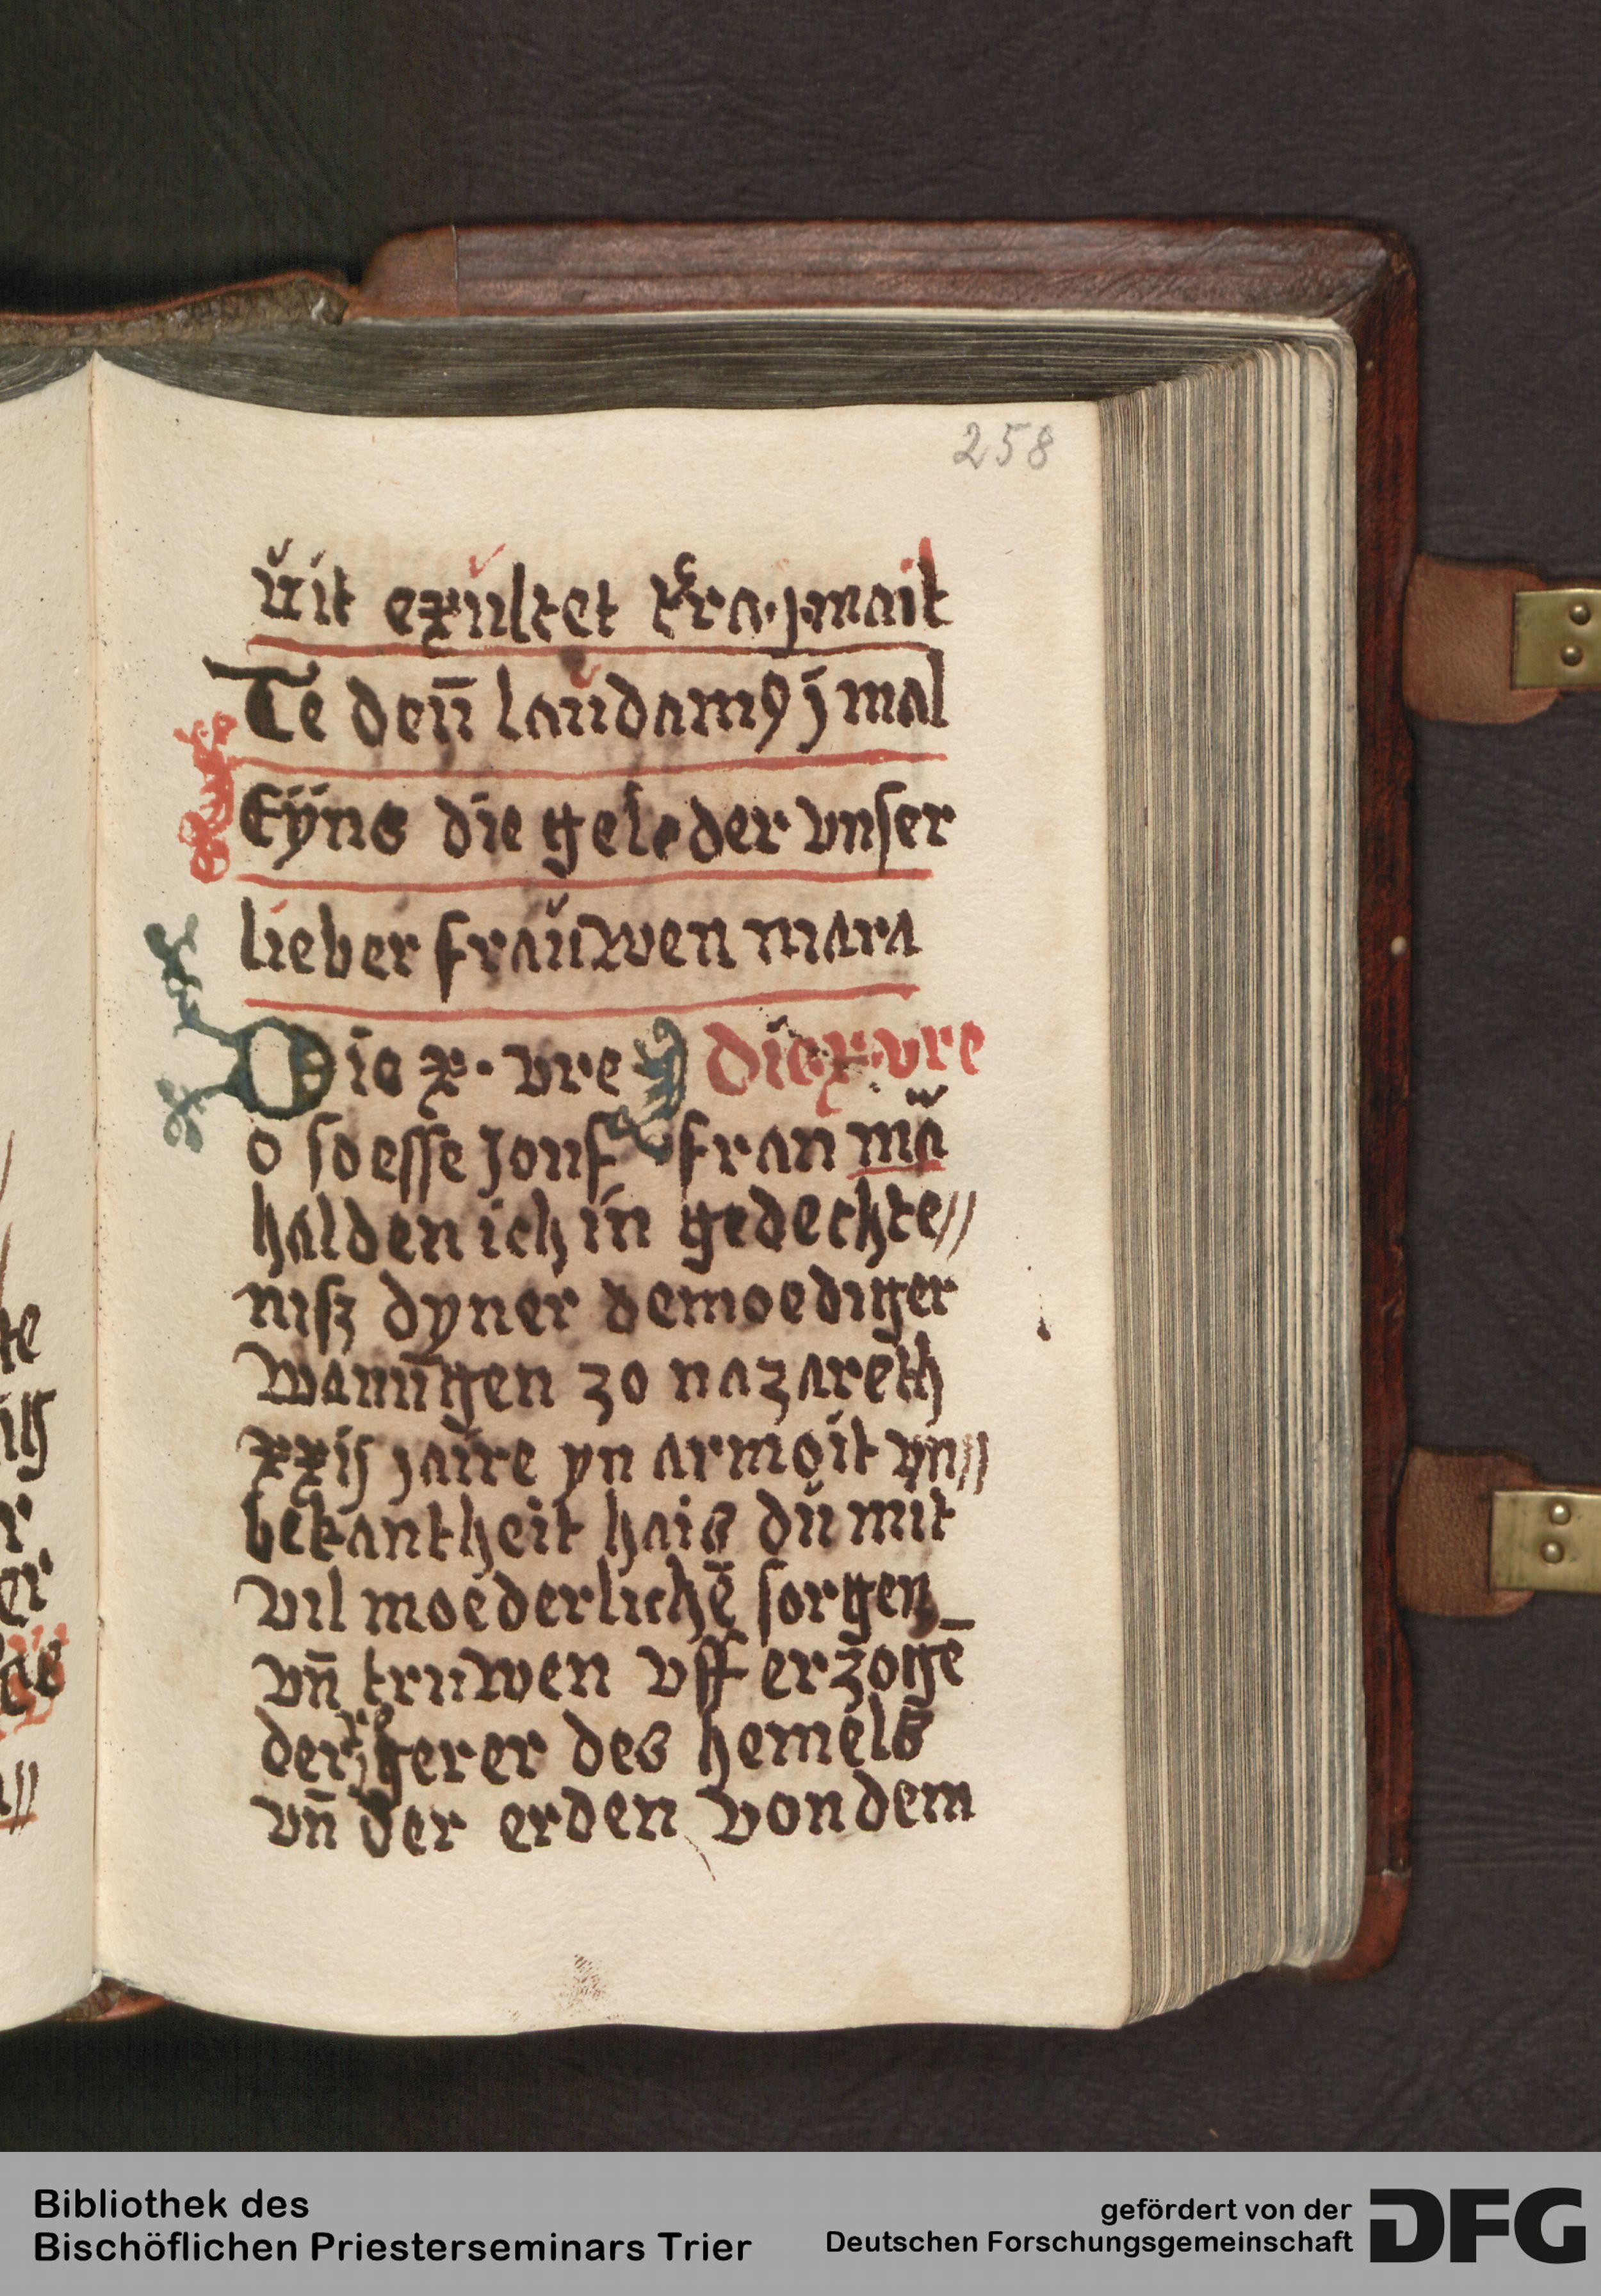 258
uit exultet tra · j · mail
Te deū laudamꝰ j mal
Eyns die geleder vnser
lieber frauwen mara
Die x · vre die x · vre
o soesse jonffran mā
halden ich in gedechte//
nisz dyner demoediger
wanūgen zo nazareth
xxij jaire yn armoit vn//
bekantheit hais du mit
vil moederlichē sorgen
vn̄ truwen vff erzogē
der gerer des hemels
vn̄ der erden von dem
te
r
er
Bibliothek des
Bischöflichen Priesterseminars Trier
gefördert von der
Deutschen Forschungsgemeinschaft
DFG